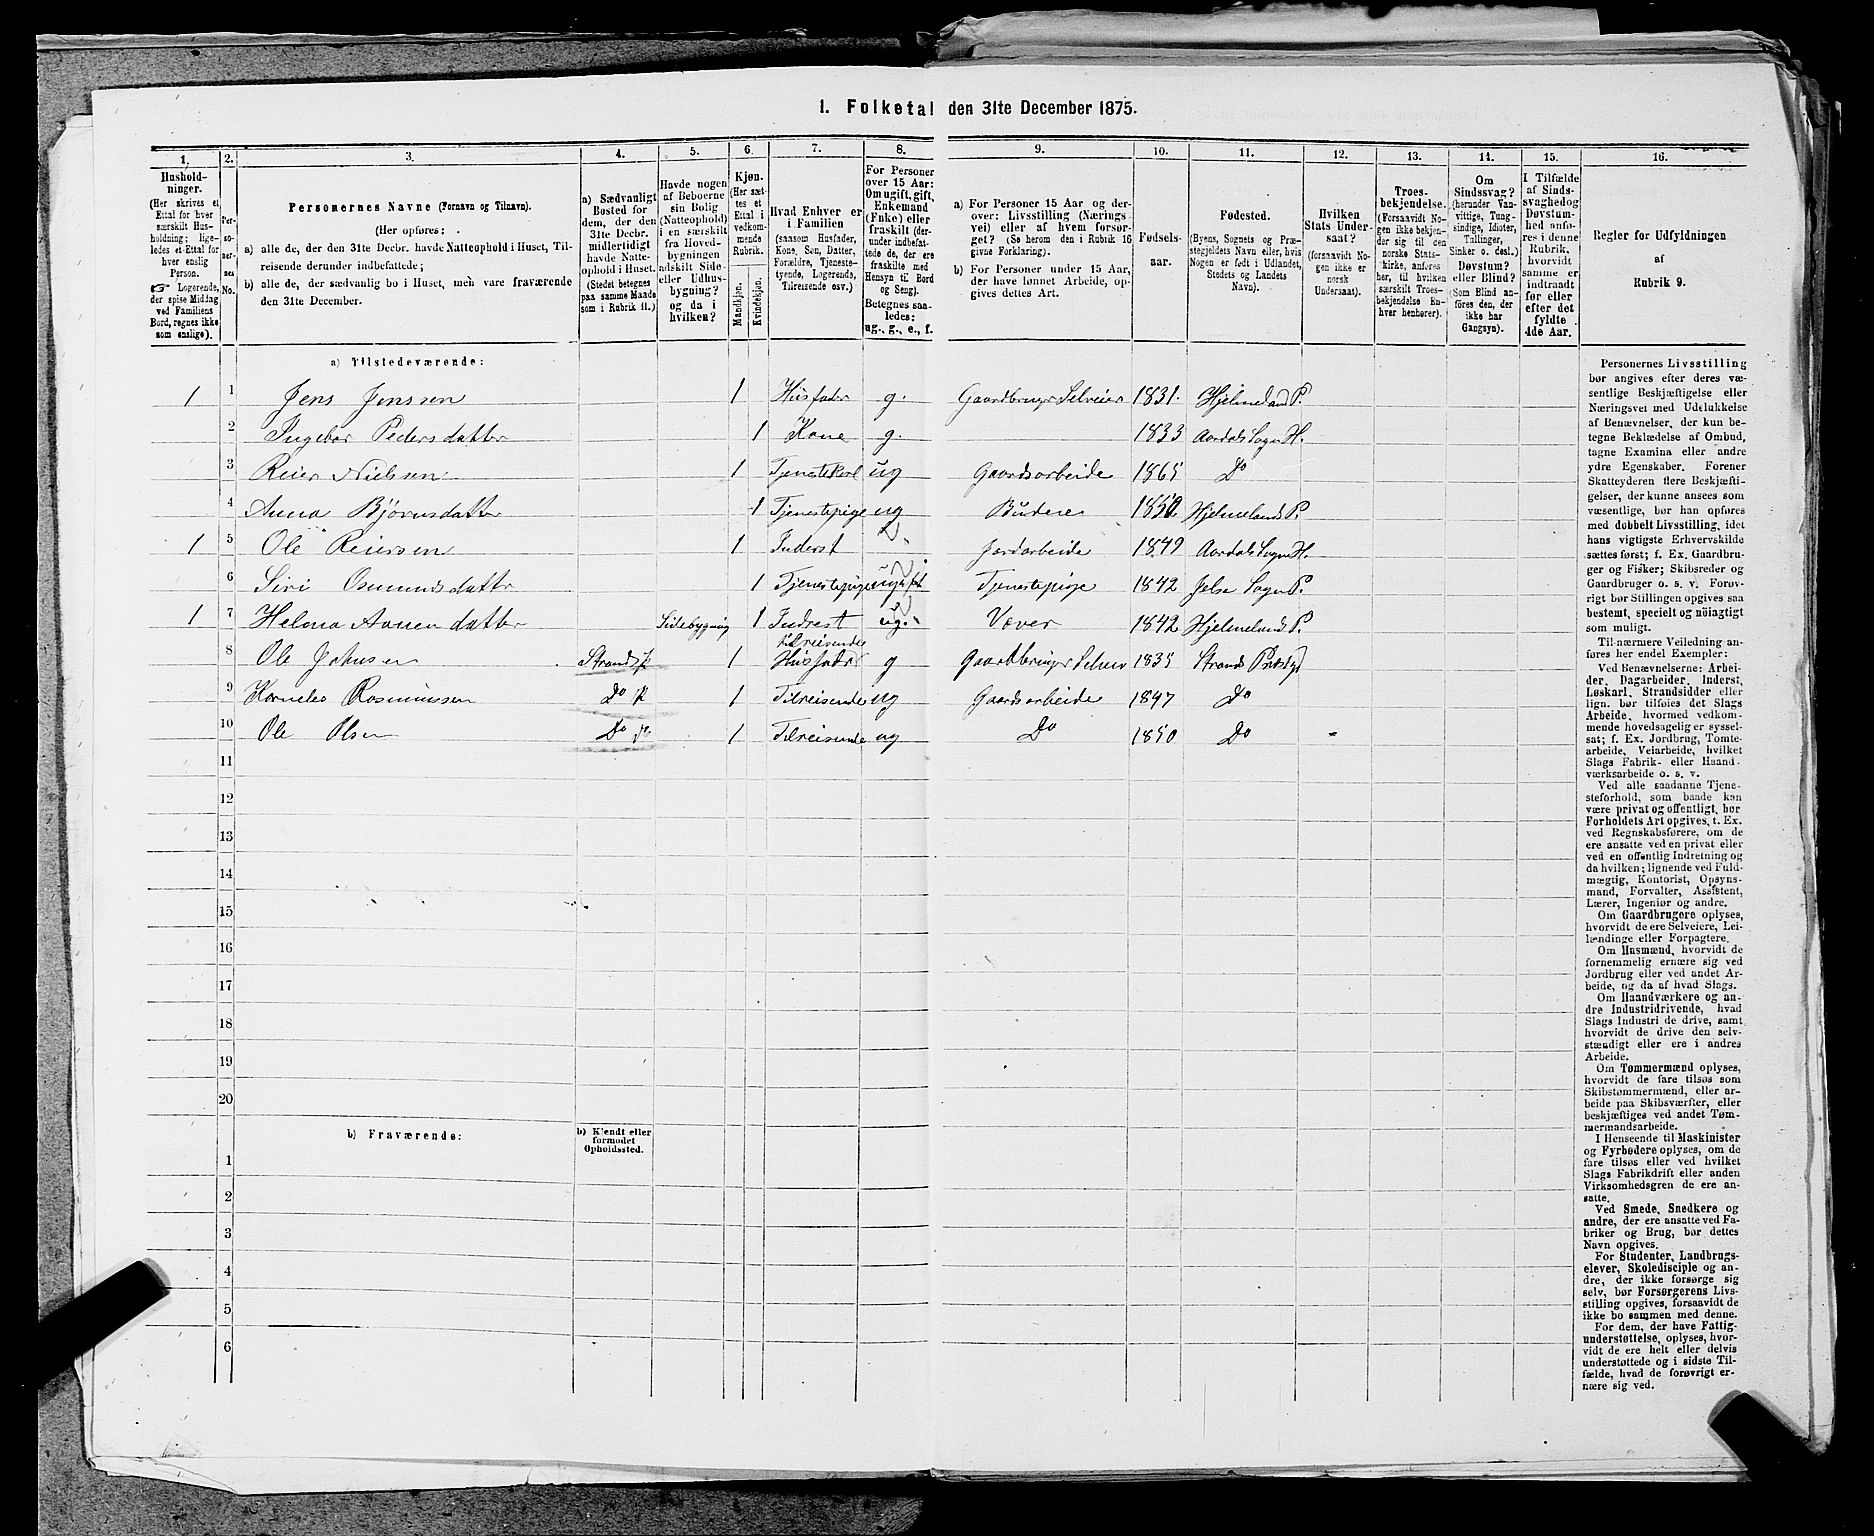 1. Folketal den 31te December 1875.
1. 2. 3. 4. 5. 6. 7. 8. 9. 10. 11. 12. 13. 14. 15. 16.
Hushold-
ninger.
(Her skrives et
Ettal for hver
særskilt Hus-
holdning; lige-
ledes et Ettal for
hver enslig
Person.
☞ Logerende,
der spise Middag
ved Familiens
Bord, regnes ikke
som enslige).
Per-
so-
ner-
nes
No.
Personernes Navne (Fornavn og Tilnavn).
(Her opføres:
a) alle de, der den 31te Decbr. havde Natteophold i Huset, Til-
reisende derunder indbefattede;
b) alle de, der sædvanlig bo i Huset, men vare fraværende
den 31te December.
a) Sædvanligt
Bosted for
dem, der den
31te Decbr.
midlertidigt
havde Natte-
ophold i Huset.
(Stedet betegnes
paa samme Maade
som i Rubrik 11.)
Havde nogen
af Beboerne
sin Bolig
(Natteophold)
i en særskilt
fra Hoved-
bygningen
adskilt Side-
eller Udhus-
bygning?
og da i
hvilken?
Kjøn.
(Her sæt-
tes et
Ettal i
vedkom-
mende
Rubrik.
Mandkjøn.
Kvindekjøn.
Hvad Enhver er
i Familien
(saasom Husfader,
Kone, Søn, Datter,
Forældre, Tjeneste-
tyende, Logerende,
Tilreisende osv.)
For Personer
over 15 Aar:
Om ugift, gift,
Enkemand
(Enke) eller
fraskilt (der-
under indbefat-
tede de, der ere
fraskilte med
Hensyn til Bord
og Seng).
Betegnes saa-
ledes:
ug., g., e., f.
a) For Personer 15 Aar og der-
over: Livsstilling (Nærings-
vei) eller af hvem forsør-
get? (Se herom den i Rubrik 16
givne Forklaring).
b) For Personer under 15 Aar,
der have lønnet Arbeide, op-
gives dettes Art.
Fødsels-
aar.
Fødested.
(Byens, Sognets og Præ-
stegjeldets Navn eller, hvis
Nogen er født i Udlandet,
Stedets og Landets
Navn).
Hvilken
Stats Under-
saat?
(forsaavidt No-
gen ikke er
norsk
Undersaat).
Troes-
bekjendelse.
(Forsaavidt No-
gen ikke bekjen-
der sig til den
norske Stats-
kirke, anføres
her, til hvilken
særskilt Troes-
bekjendelse En-
hver henhører).
Om
Sindssvag?
(herunder Van-
vittige, Tung-
sindige, Idioter,
Tullinger,
Sinker o. desl.).
Døvstum?
eller Blind?
(Som Blind an-
føres den, der
ikke har
Gangsyn).
I Tilfælde
af Sinds-
svaghed og
Døvstum-
hed anfø-
res i denne
Rubrik.
hvorvidt
samme er
indtraadt
før eller
efter det
fyldte
4de Aar.
Regler for Udfyldningen
af
Rubrik 9.
a) Tilstedeværende:
1 1 Jens Jenssen 1 Husfader g. Gaardbruger Selveier 1831. Hjelmeland P.
2 Ingebor Pedersdatter 1 Kone g. 1833 Aardals Sogn H.
3 Reier Nielsen 1 Tjenestekarl ug Gaardsarbeide 1865 Do
4 Anna Bjørnsdatter 1 Tjenestepige ug Budeie 1850 Hjelmelands P.
1 5 Ole Reiersen 1 Inderst Jordarbeide 1849 Aardals Sogn H.
6 Siri Osmundsdatter 1 Tjenestepige ugift Tjenestepige 1842 Jelse Sogn P.
1 7 Helena Aanendatter Sidebygning 1 Indrest ug. Væver 1842 Hjelmelands P.
tilreisende
8 Ole Johnsen Strands P 1 Husfader g Gaardbruger Selveier 1835 Strands Præstgd
9 Kornelus Rasmussen Do P 1 Tilreisende ug Gaardsarbeide 1847 Do
10 Ole Olsen Do P. 1 Tilreisende ug Do 1850 Do
11
12
13
14
15
16
17
18
19
20
b) Fraværende:
b) Kjendt eller
formodet
Opholdssted.
1
2
3
4
5
6
Personernes Livsstilling
bør angives efter deres væ-
sentlige Beskjæftigelse eller
Næringsvei med Udelukkelse
af Benævnelser, der kun be-
tegne Beklædelse af Ombud,
tagne Examina eller andre
ydre Egenskaber. Forener
Skatteyderen flere Beskjæfti-
gelser, der kunne ansees som
væsentlige, bør han opføres
med dobbelt Livsstilling, idet
hans vigtigste Erhvervskilde
sættes først; f. Ex. Gaardbru-
ger og Fisker; Skibsreder og
Gaardbruger o. s. v. Forøv-
rigt bør Stillingen opgives saa
bestemt, specielt og nøiagtigt
som muligt.
Til nærmere Veiledning an-
føres her endel Exempler:
Ved Benævnelserne: Arbei-
der, Dagarbeider, Inderst,
Løskarl, Strandsidder eller
lign. bør tilføies det Slags
Arbeide, hvormed vedkom-
mende hovedsagelig er syssel-
sat; f. Ex. Jordbrug, Tomte-
arbeide, Veiarbeide, hvilket
Slags Fabrik- eller Haand-
værksarbeide o. s. v.
Ved alle saadanne Tjene-
steforhold, som baade kan
være privat og offentligt, bør
Forholdets Art opgives, t. Ex.
ved Regnskabsførere, om de
ere ansatte ved en privat eller
ved en offentlig Indretning og
da hvilken; lignende ved Fuld-
mægtig, Kontorist, Opsyns-
mand, Forvalter, Assistent,
Lærer, Ingeniør og andre.
Om Gaardbrugere oplyses,
hvorvidt de ere Selveiere, Lei-
lændinge eller Forpagtere.
Om Husmænd, hvorvidt de
fornemmelig ernære sig ved
Jordbrug eller ved andet Ar-
beide, og da af hvad Slags.
Om Haandværkere og an-
dre Industridrivende, hvad
Slags Industri de drive, samt
hvorvidt de drive den selv-
stændigt eller ere i andres
Arbeide.
Om Tømmermænd oplyses,
hvorvidt de fare tilsøs som
Skibstømmermænd, eller ar-
beide paa Skibsværfter, eller
beskjæftiges ved andet Tøm-
mermandsarbeide.
I Henseende til Maskinister
og Fyrbødere oplyses, om de
fare tilsøs eller ved hvilket
Slags Fabrikdrift eller anden
Virksomhedsgren de ere an-
satte.
Ved Smede, Snedkere og
andre, der ere ansatte ved Fa-
briker og Brug, bør dettes
Navn opgives.
For Studenter, Landbrugs-
elever, Skoledisciple og an-
dre, der ikke forsørge sig
selv, bør Forsørgerens Livs-
stilling opgives, forsaavidt de
ikke bo sammen med denne.
For dem, der have Fattig-
understøttelse, oplyses, hvor-
vidt de ere helt eller delvis
understøttede og i sidste Til-
fælde, hvad de forøvrigt er-
nære sig ved.